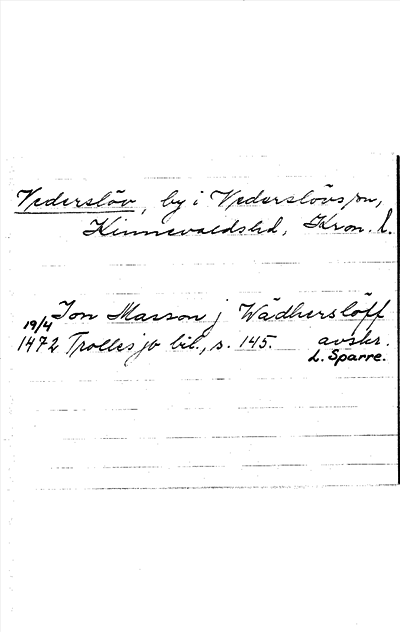 Vederslöv, by i Vederslövs sn,
Kinnevalds hd, Kron. l.
Jon Masson j Wädherslöff
19/4
1472 Trolles jo bil., s. 145. avskr.
L. Sparre.